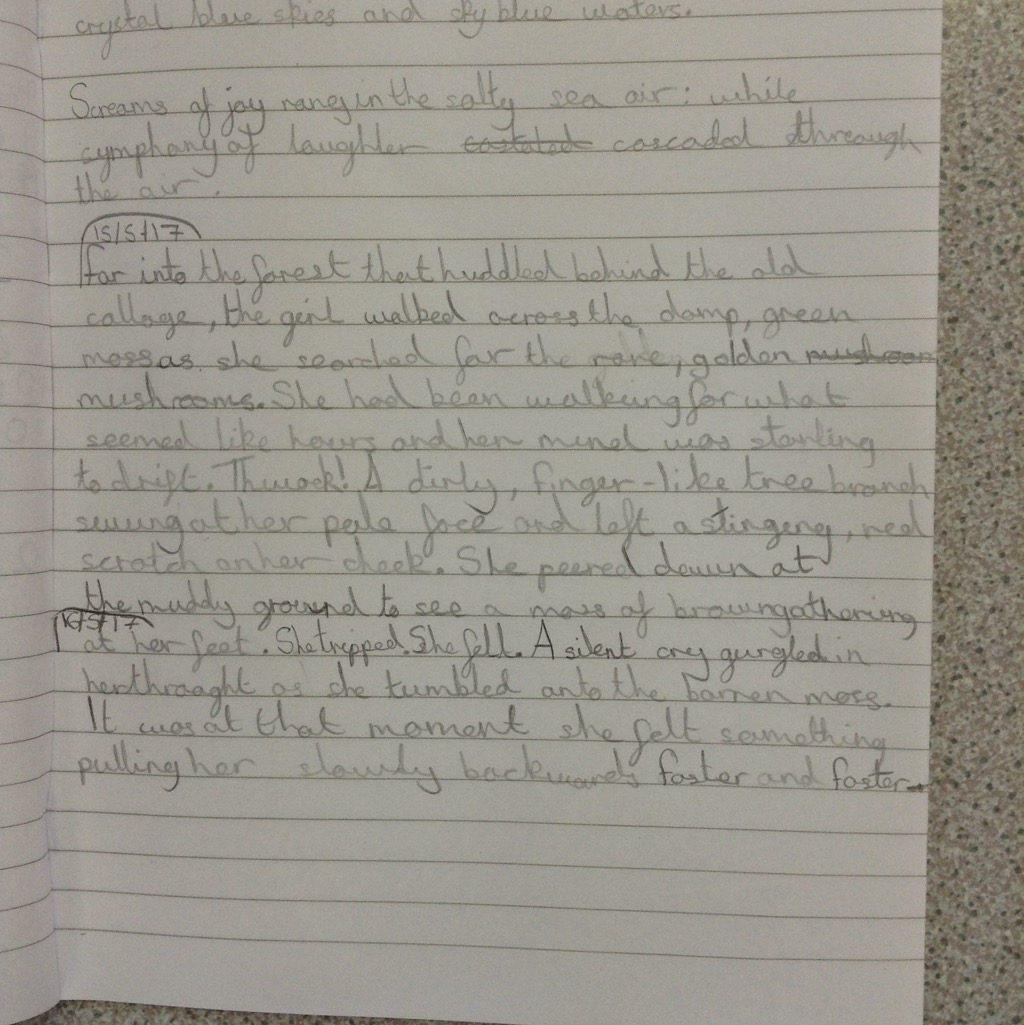 crystal blue skies and sky blue waters.
Screams of joy rang in the salty sea air: while
symphany of laughter cascaded threough
the air.
15/5/17
far into the forest that huddled behind the old
cottage, the girl walked across the damp, green
moss as she searched for the rare, golden mushroom
mushrooms. She had been walking for what
seemed like hours and her mind was starting
to drift. Thwack! A dirty, finger-like tree branch
swung at her pale face and left a stinging, red
scratch on her cheek. She peered down at
the muddy ground to see a mass of brown gathering
16/5/17
at her feet. She tripped. She fell. A silent cry gurgled in
her thraaght as she tumbled onto the barren moss.
It was at that moment she felt something
pulling her slowly backwards faster and faster